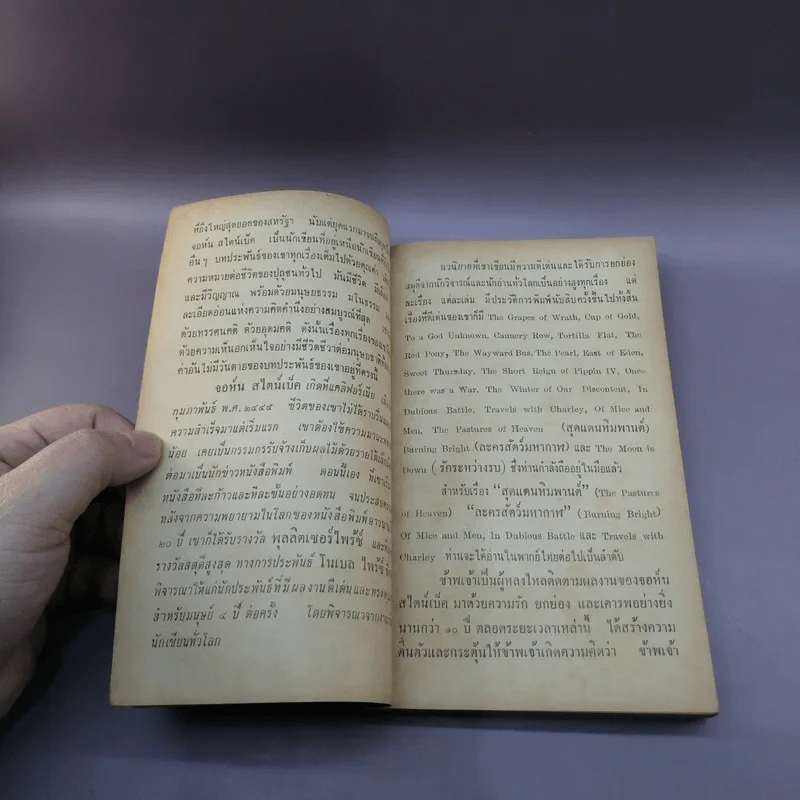 ที่ยิ่งใหญ่สุดยอดของสหรัฐฯ นับแต่ยุคแรกมาจน
จอห์น สไตน์เบ็ค เป็นนักเขียนที่อยู่เหนือนักเขียน
อื่นๆ บทประพันธ์ของเขาทุกเรื่องเต็มไปด้วยคุณค่า
ความหมายต่อชีวิตของปุถุชนทั่วไป มันมีชีวิต
และมีวิญญาณ พร้อมด้วยมนุษยธรรม มโนธรรม
ละเอียดอ่อนแห่งความคิดคำนึงอย่างสมบูรณ์ที่สุด
ด้วยทรรศนคติ ด้วยอุดมคติ ดังนั้นเรื่องทุกเรื่องของเขา
ด้วยความเห็นอกเห็นใจอย่างมีชีวิตชีวาต่อมนุษยชาติ
ค่าอันไม่มีวันตายของบทประพันธ์ของเขาอยู่ที่ตรงนี้
จอห์น สไตน์เบ็ค เกิดที่แคลิฟอร์เนีย
กุมภาพันธ์ พ.ศ. ๒๔๔๕ ชีวิตของเขาไม่ได้ราบรื่น
ความสำเร็จมาแต่เริ่มแรก เขาต้องใช้ความมานะ
น้อย เคยเป็นกรรมกรรับจ้างเก็บผลไม้ด้วยรายได้เล็ก
ต่อมาเป็นนักข่าวหนังสือพิมพ์ ตอนนี้เอง ที่เขา
หนังสือทีละก้าวและทีละขั้นอย่างอดทน จนประสบ
หลังจากความพยายามในโลกของหนังสือพิมพ์ยาวนาน
๒๐ ปี เขาก็ได้รับรางวัล พุลลิตเซอร์ไพร้ซ์ และ
รางวัลสดุดีสูงสุด ทางการประพันธ์ โนเบล ไพร้ซ์
พิจารณาให้แก่นักประพันธ์ที่มีผลงานดีเด่นและทรงคุณ
สำหรับมนุษย์ ๔ ปี ต่อครั้ง โดยพิจารณาจาก
นักเขียนทั่วโลก
นวนิยายที่เขาเขียนมีความดีเด่นและได้รับการยกย่อง
สดุดีจากนักวิจารณ์และนักอ่านทั่วโลกเป็นอย่างสูงทุกเรื่อง แต่
ละเรื่อง แต่ละเล่ม มีประวัติการพิมพ์นับสิบครั้งขึ้นไปทั้งสิ้น
เรื่องที่ดีเด่นของเขาก็มี The Grapes of Wrath, Cup of Gold,
To a God Unknown, Cannery Row, Tortilla Flat, The
Red Pony, The Wayward Bus, The Pearl, East of Eden,
Sweet Thursday, The Short Reign of Pippin IV, Once
there was a War, The Winter of Our Discontent, In
Dubious Battle, Travels with Charley, Of Mice and
Men, The Pastures of Heaven (สุดแดนหิมพานต์)
Burning Bright (ละครสัตว์มหากาฬ) และ The Moon is
Down (รักระหว่างรบ) ซึ่งท่านกำลังถืออยู่ในมือแล้ว
สำหรับเรื่อง “สุดแดนหิมพานต์” (The Pastures
of Heaven) “ละครสัตว์มหากาฬ” (Burning Bright)
Of Mice and Men, In Dubious Battle และ Travels with
Charley ท่านจะได้อ่านในพากย์ไทยต่อไปเป็นลำดับ
ข้าพเจ้าเป็นผู้หลงใหลติดตามผลงานของจอห์น
สไตน์เบ็ค มาด้วยความรัก ยกย่อง และเคารพอย่างยิ่ง
นานกว่า ๑๐ ปี ตลอดระยะเวลาเหล่านี้ ได้สร้างความ
ตื่นตัวและกระตุ้นให้ข้าพเจ้าเกิดความคิดว่า ข้าพเจ้า